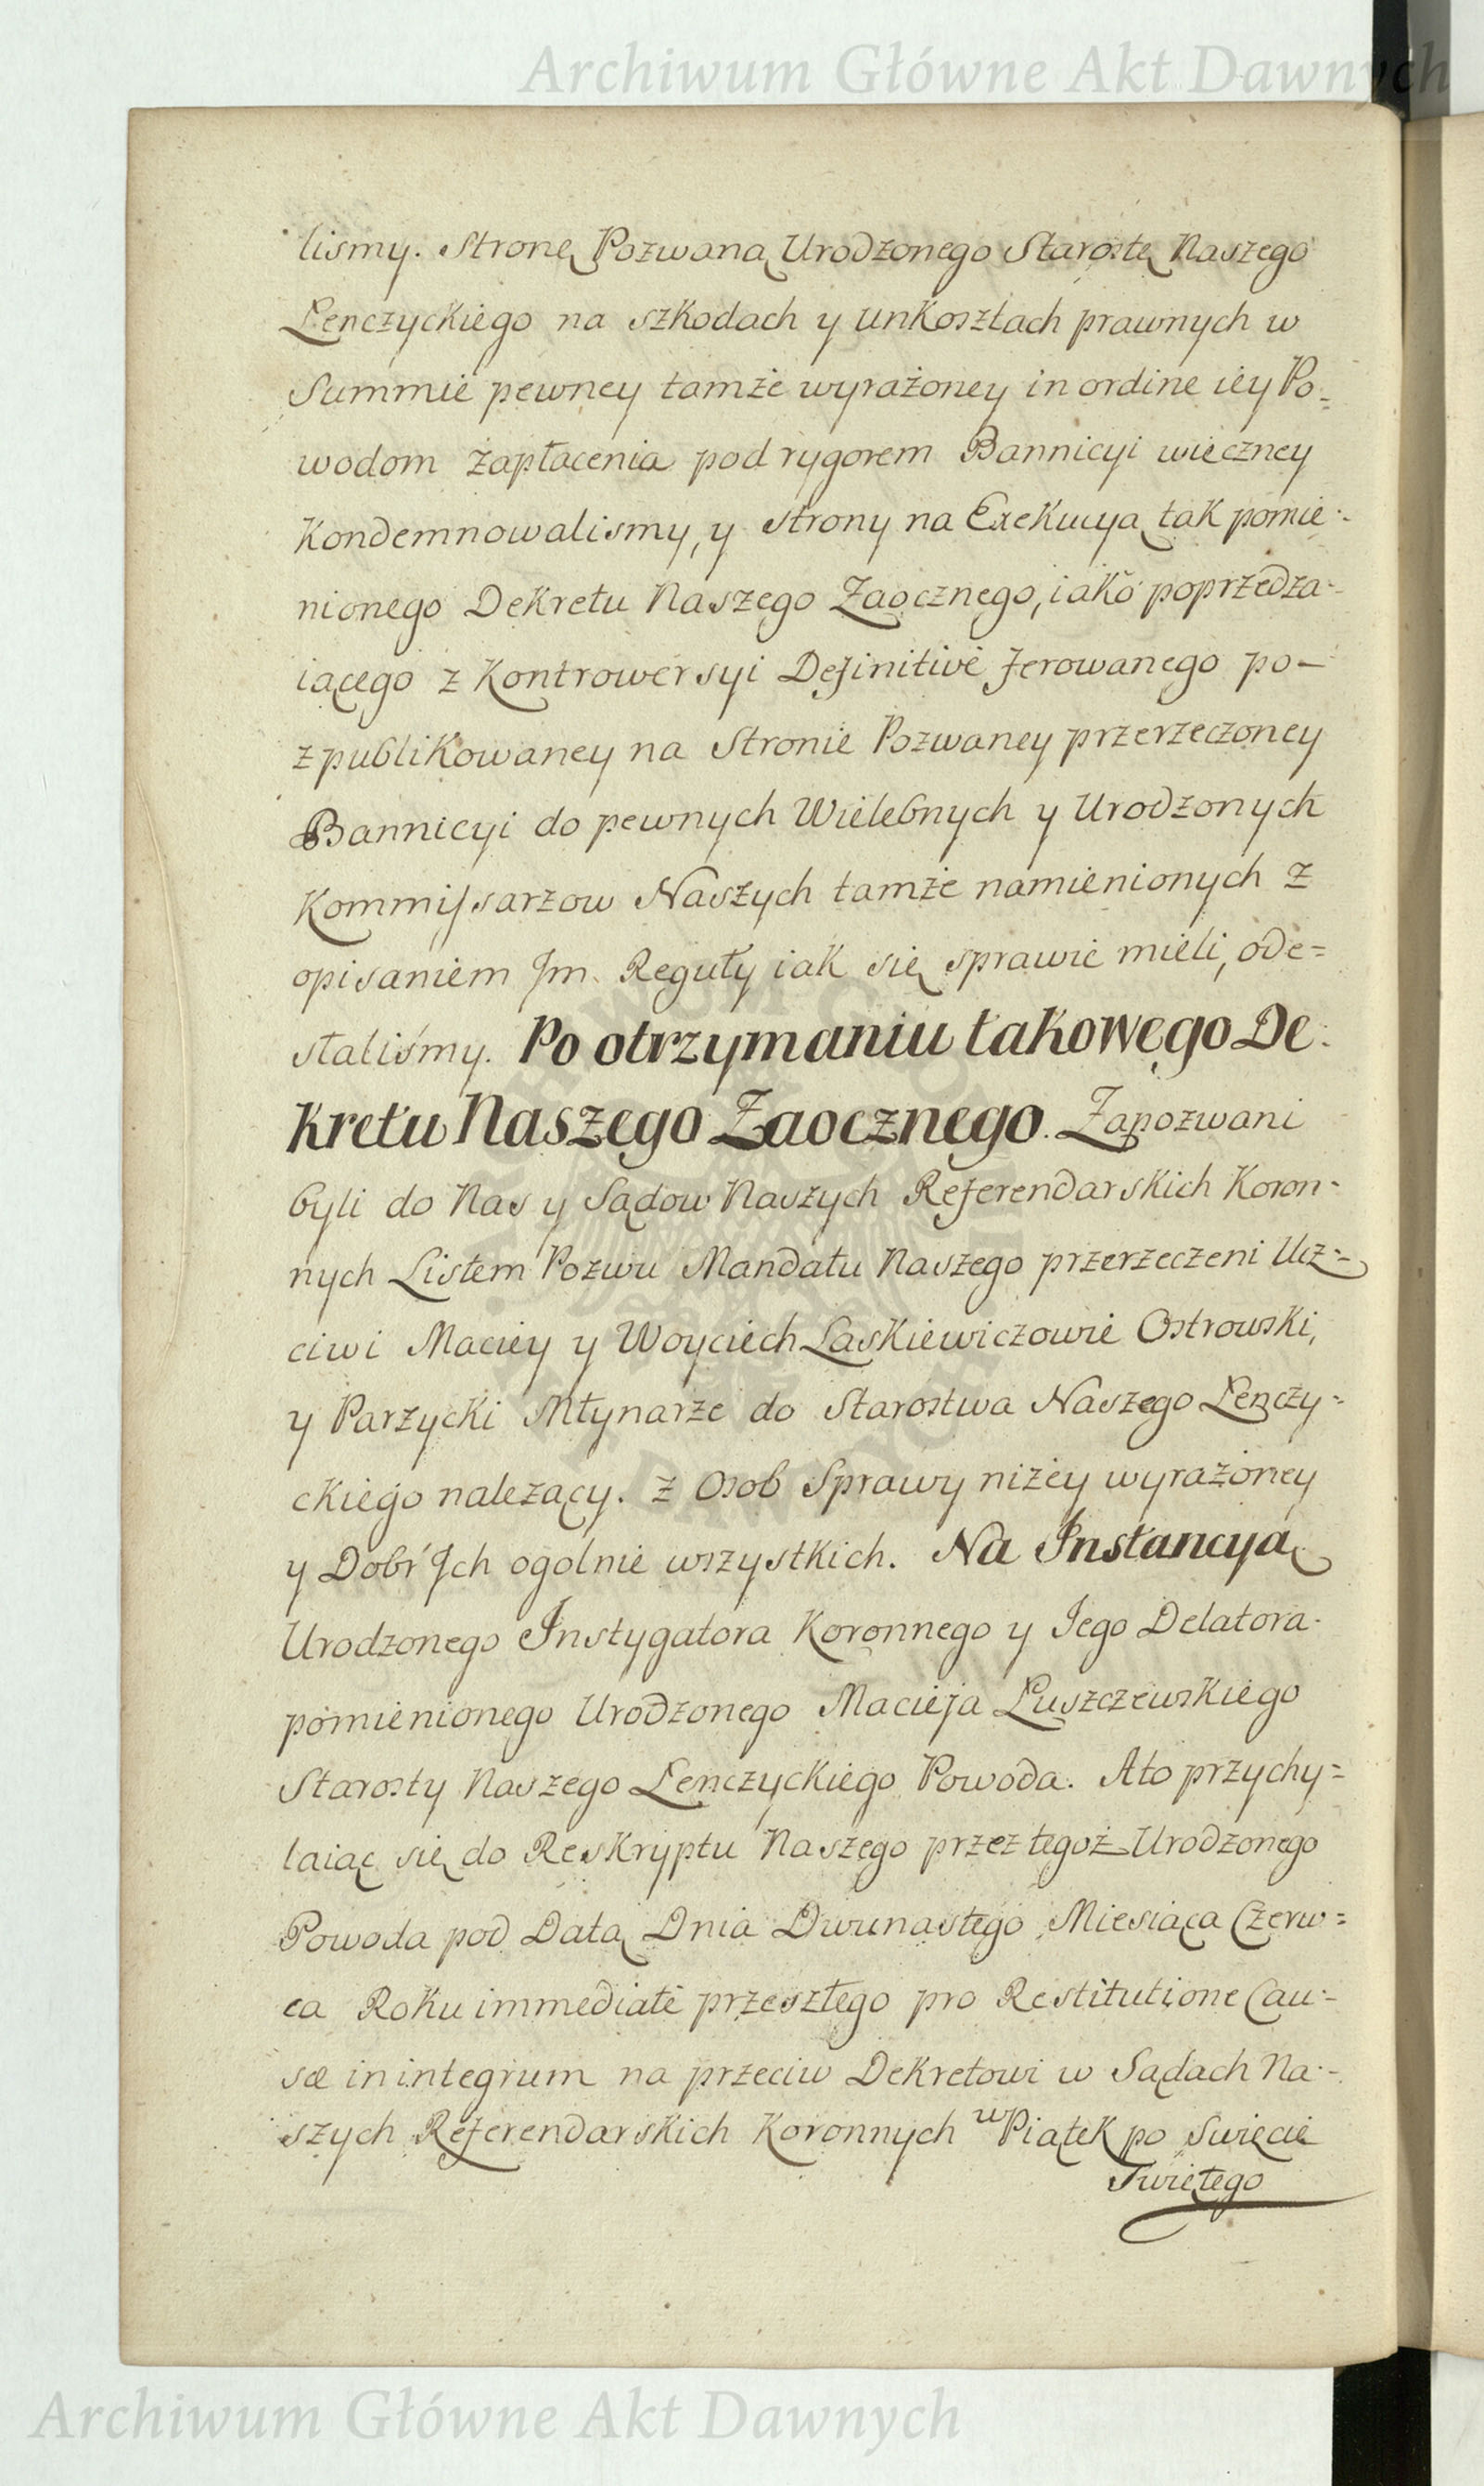 Archiwum Główne Akt Dawnych
lismy. Stronę Pozwaną Urodzonego Starostę Naszego
Lenczyckiego na szkodach y unkosztach prawnych w
Summie pewney tamże wyrażoney in ordine iey Po=
wodom zapłacenia pod rygorem Bannicyi wieczney
Kondemnowalismy, y strony na Exekucyą tak pomie-
nionego Dekretu Naszego Zaocznego, iako poprzedza-
iącego z Kontrowersyi Definitivè ferowanego po-
zpublikowaney na Stronie Pozwaney przerzeczoney
Bannicyi do pewnych Wielebnych y Urodzonych
Kommissarzow Naszych tamże namienionych z
opisaniem Jm. Reguły iak się sprawić mieli, ode=
słaliśmy. Po otrzymaniu takowego De-
kretu Naszego Zaocznego. Zapozwani
byli do Nas y Sądow Naszych Referendarskich Koron-
nych Listem Pozwu Mandatu Naszego przerzeczeni Ucz-
ciwi Maciey y Woyciech Laskiewiczowie Ostrowski,
y Parzycki Młynarze do Starostwa Naszego Lenczy-
ckiego nalezący. z Osob Sprawy niżey wyrażoney
y Dobr Jch ogolnie wszystkich. Na Instancyą
Urodzonego Instygatora Koronnego y Iego Delatora
pomienionego Urodzonego Macieja Łuszczewskiego
Starosty Naszego Lenczyckiego Powoda. Ato przychy=
laiąc się do Reskryptu Naszego przez tegoż Urodzonego
Powoda pod Datą Dnia Dwunastego Miesiąca Czerw=
ca Roku immediatè przeszłego pro Restitutione Cau-
sæ in integrum na przeciw Dekretowi w Sądach Na-
szych Referendarskich Koronnych w Piątek po Swięcie
Swiętego
Archiwum Główne Akt Dawnych